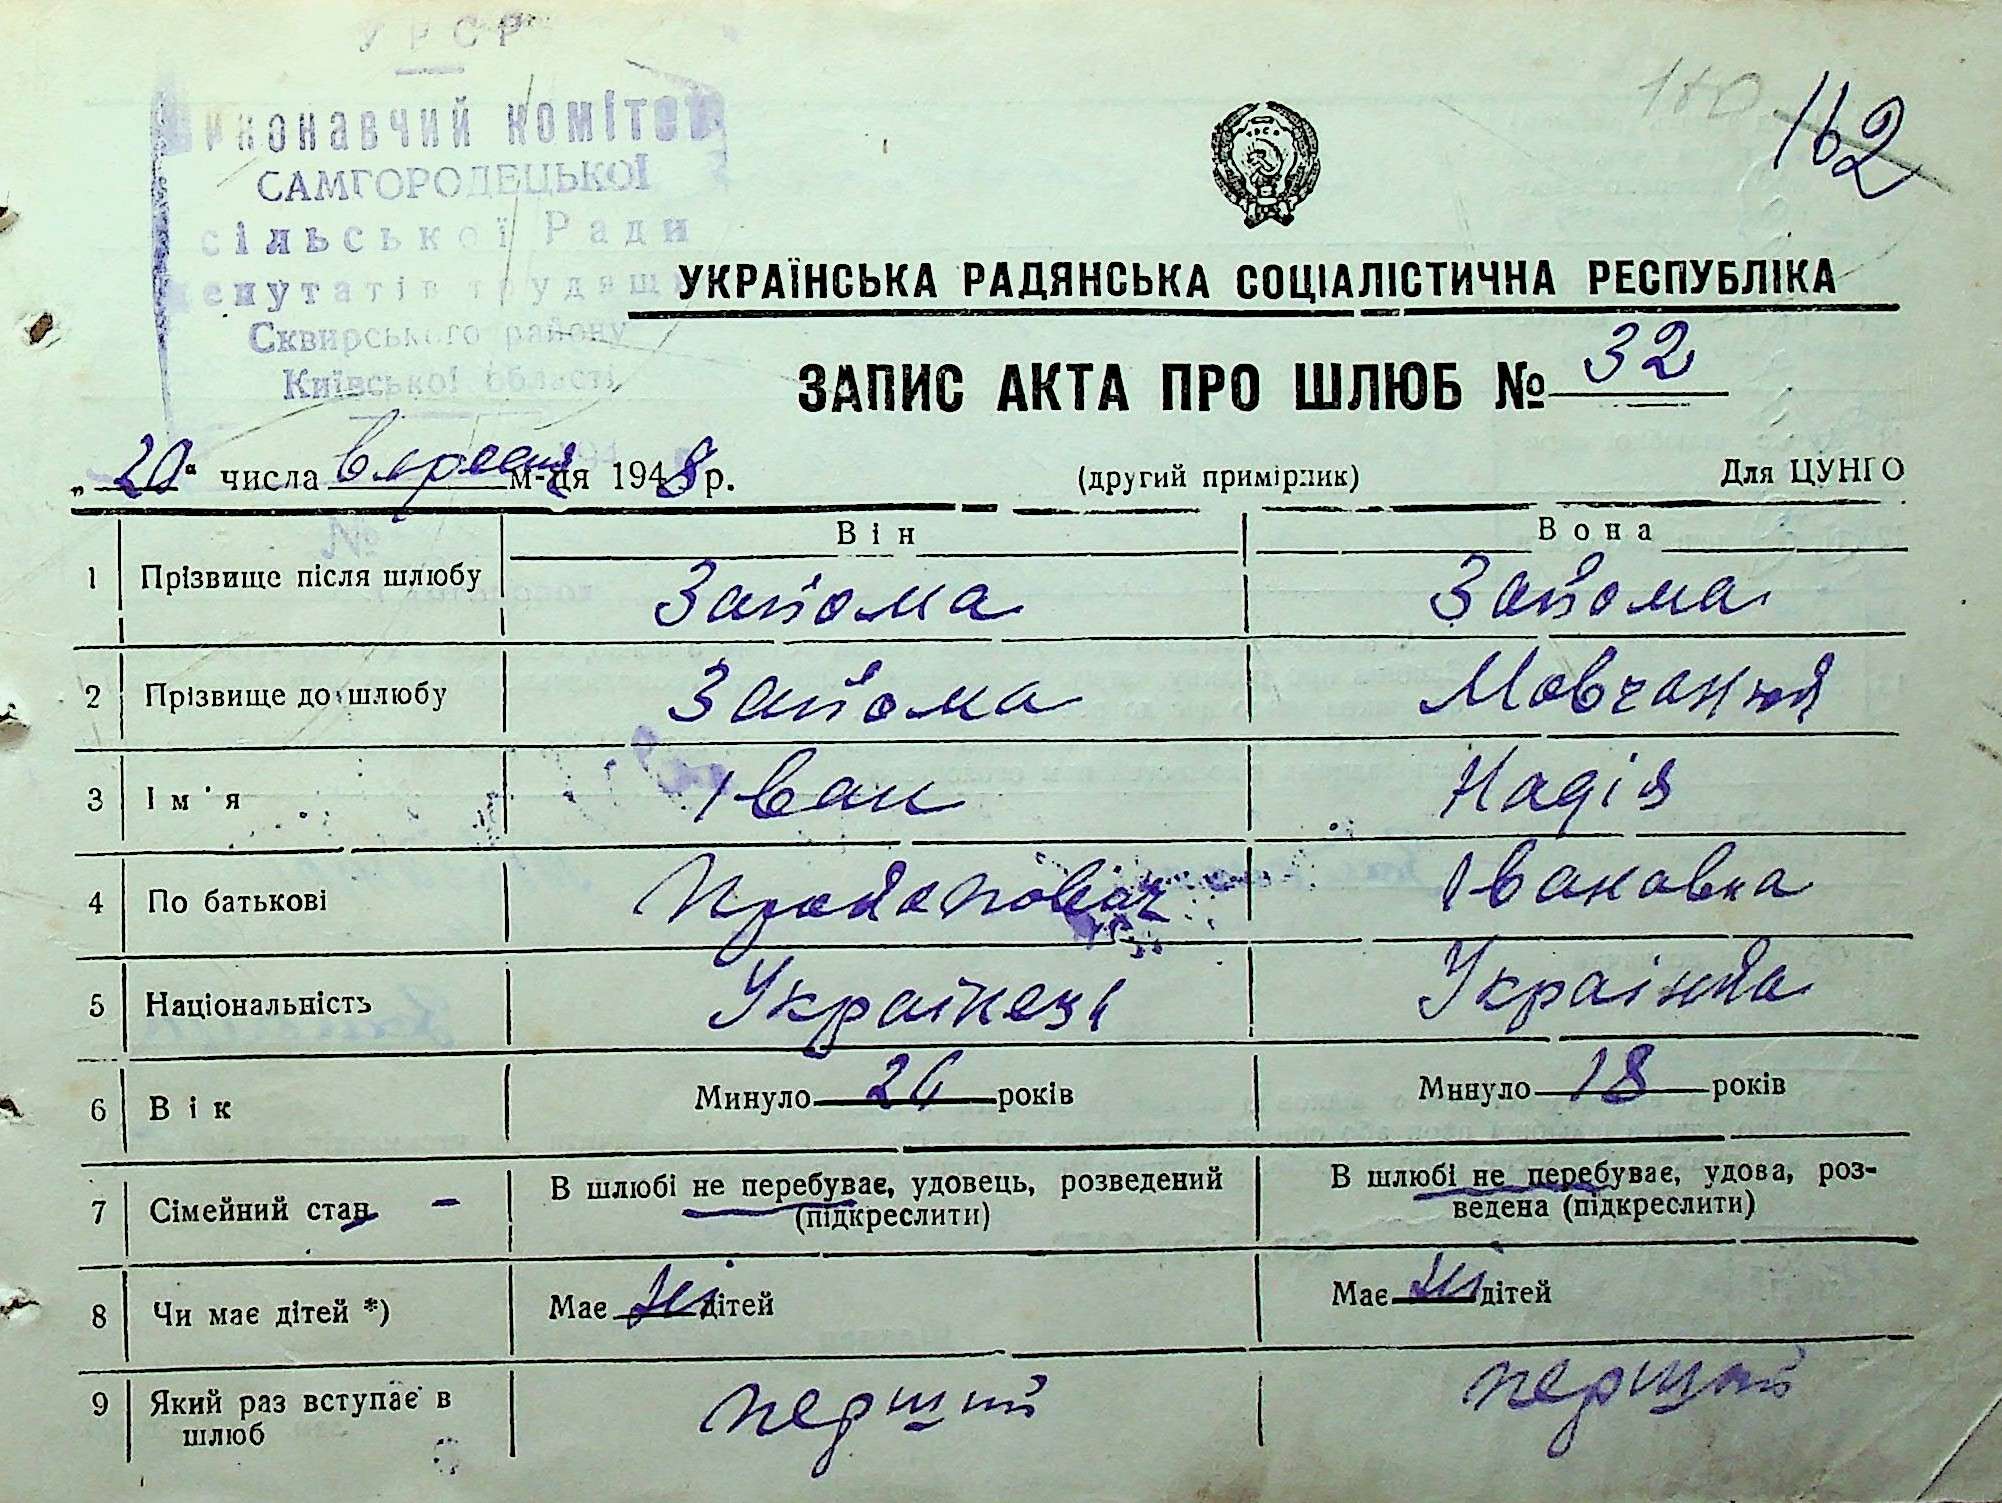 УРСР
Виконавчий комітет
САМГОРОДЕЦЬКОЇ
сільської Ради
депутатів трудящ
Сквирського району
Київської області
162
УКРАЇНСЬКА РАДЯНСЬКА СОЦІАЛІСТИЧНА РЕСПУБЛІКА
ЗАПИС АКТА ПРО ШЛЮБ № 32
„20“ числа вересня м-ця 1948 р. (другий примірник) Для ЦУНГО
Він Вона
1 Прізвище після шлюбу Зайома Зайома
2 Прізвище до шлюбу Зайома
3 Ім'я Іван Надія
4 По батькові Івановна
5 Національність Українец Украінка
6 Вік Минуло років Минуло 18 років
7 Сімейний стан - В шлюбі не перебуває, удовець, розведений (підкреслити) В шлюбі не перебуває, удова, роз-
ведена (підкреслити)
8 Чи має дітей *) Має ні дітей Має ні дітей
9 Який раз вступає в
шлюб перший перший